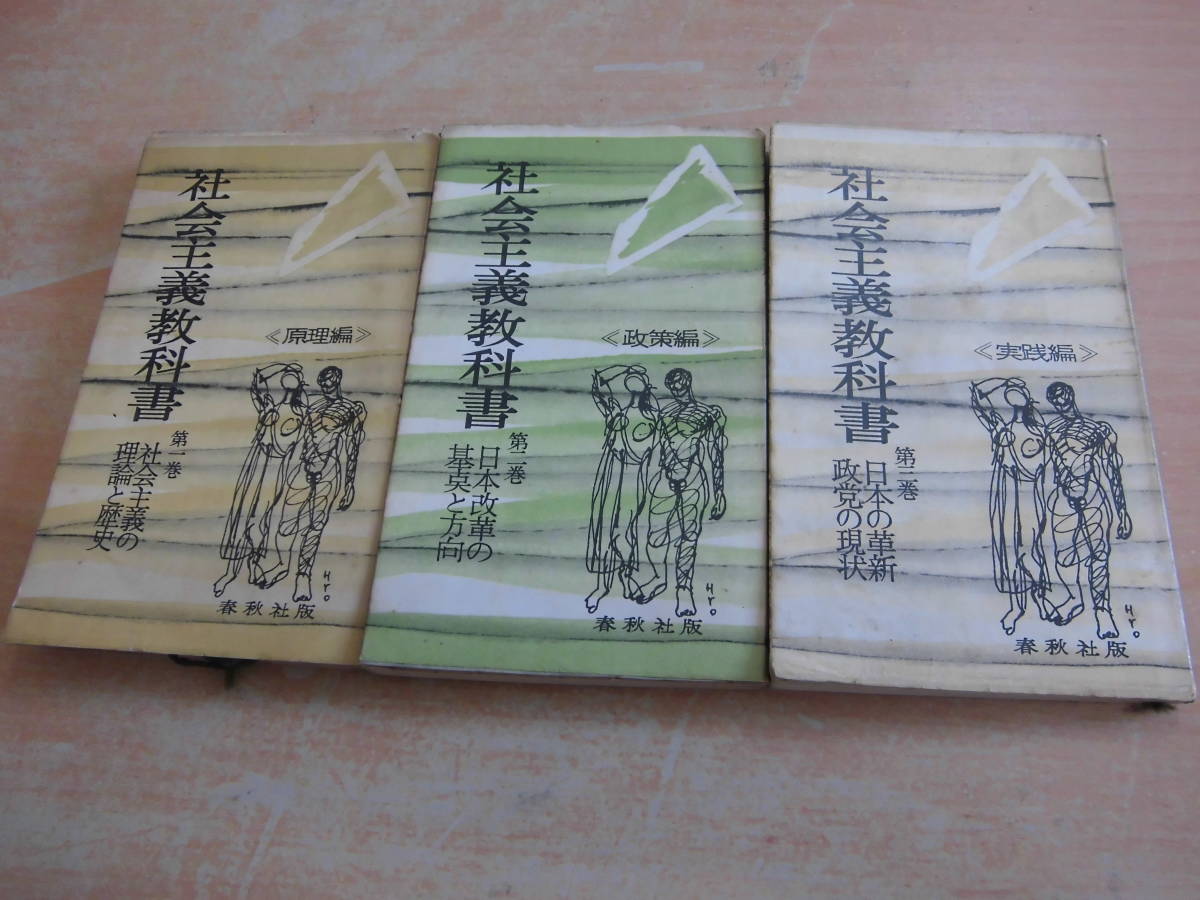 社会主義教科書
《原理編》
第一巻
社会主義の
理論と歴史
Hro
春秋社版
社会主義教科書
《政策編》
第二巻
日本改革の
基本と方向
Hro
春秋社版
社会主義教科書
《実践編》
第三巻
日本の革新
政党の現状
Hro
春秋社版